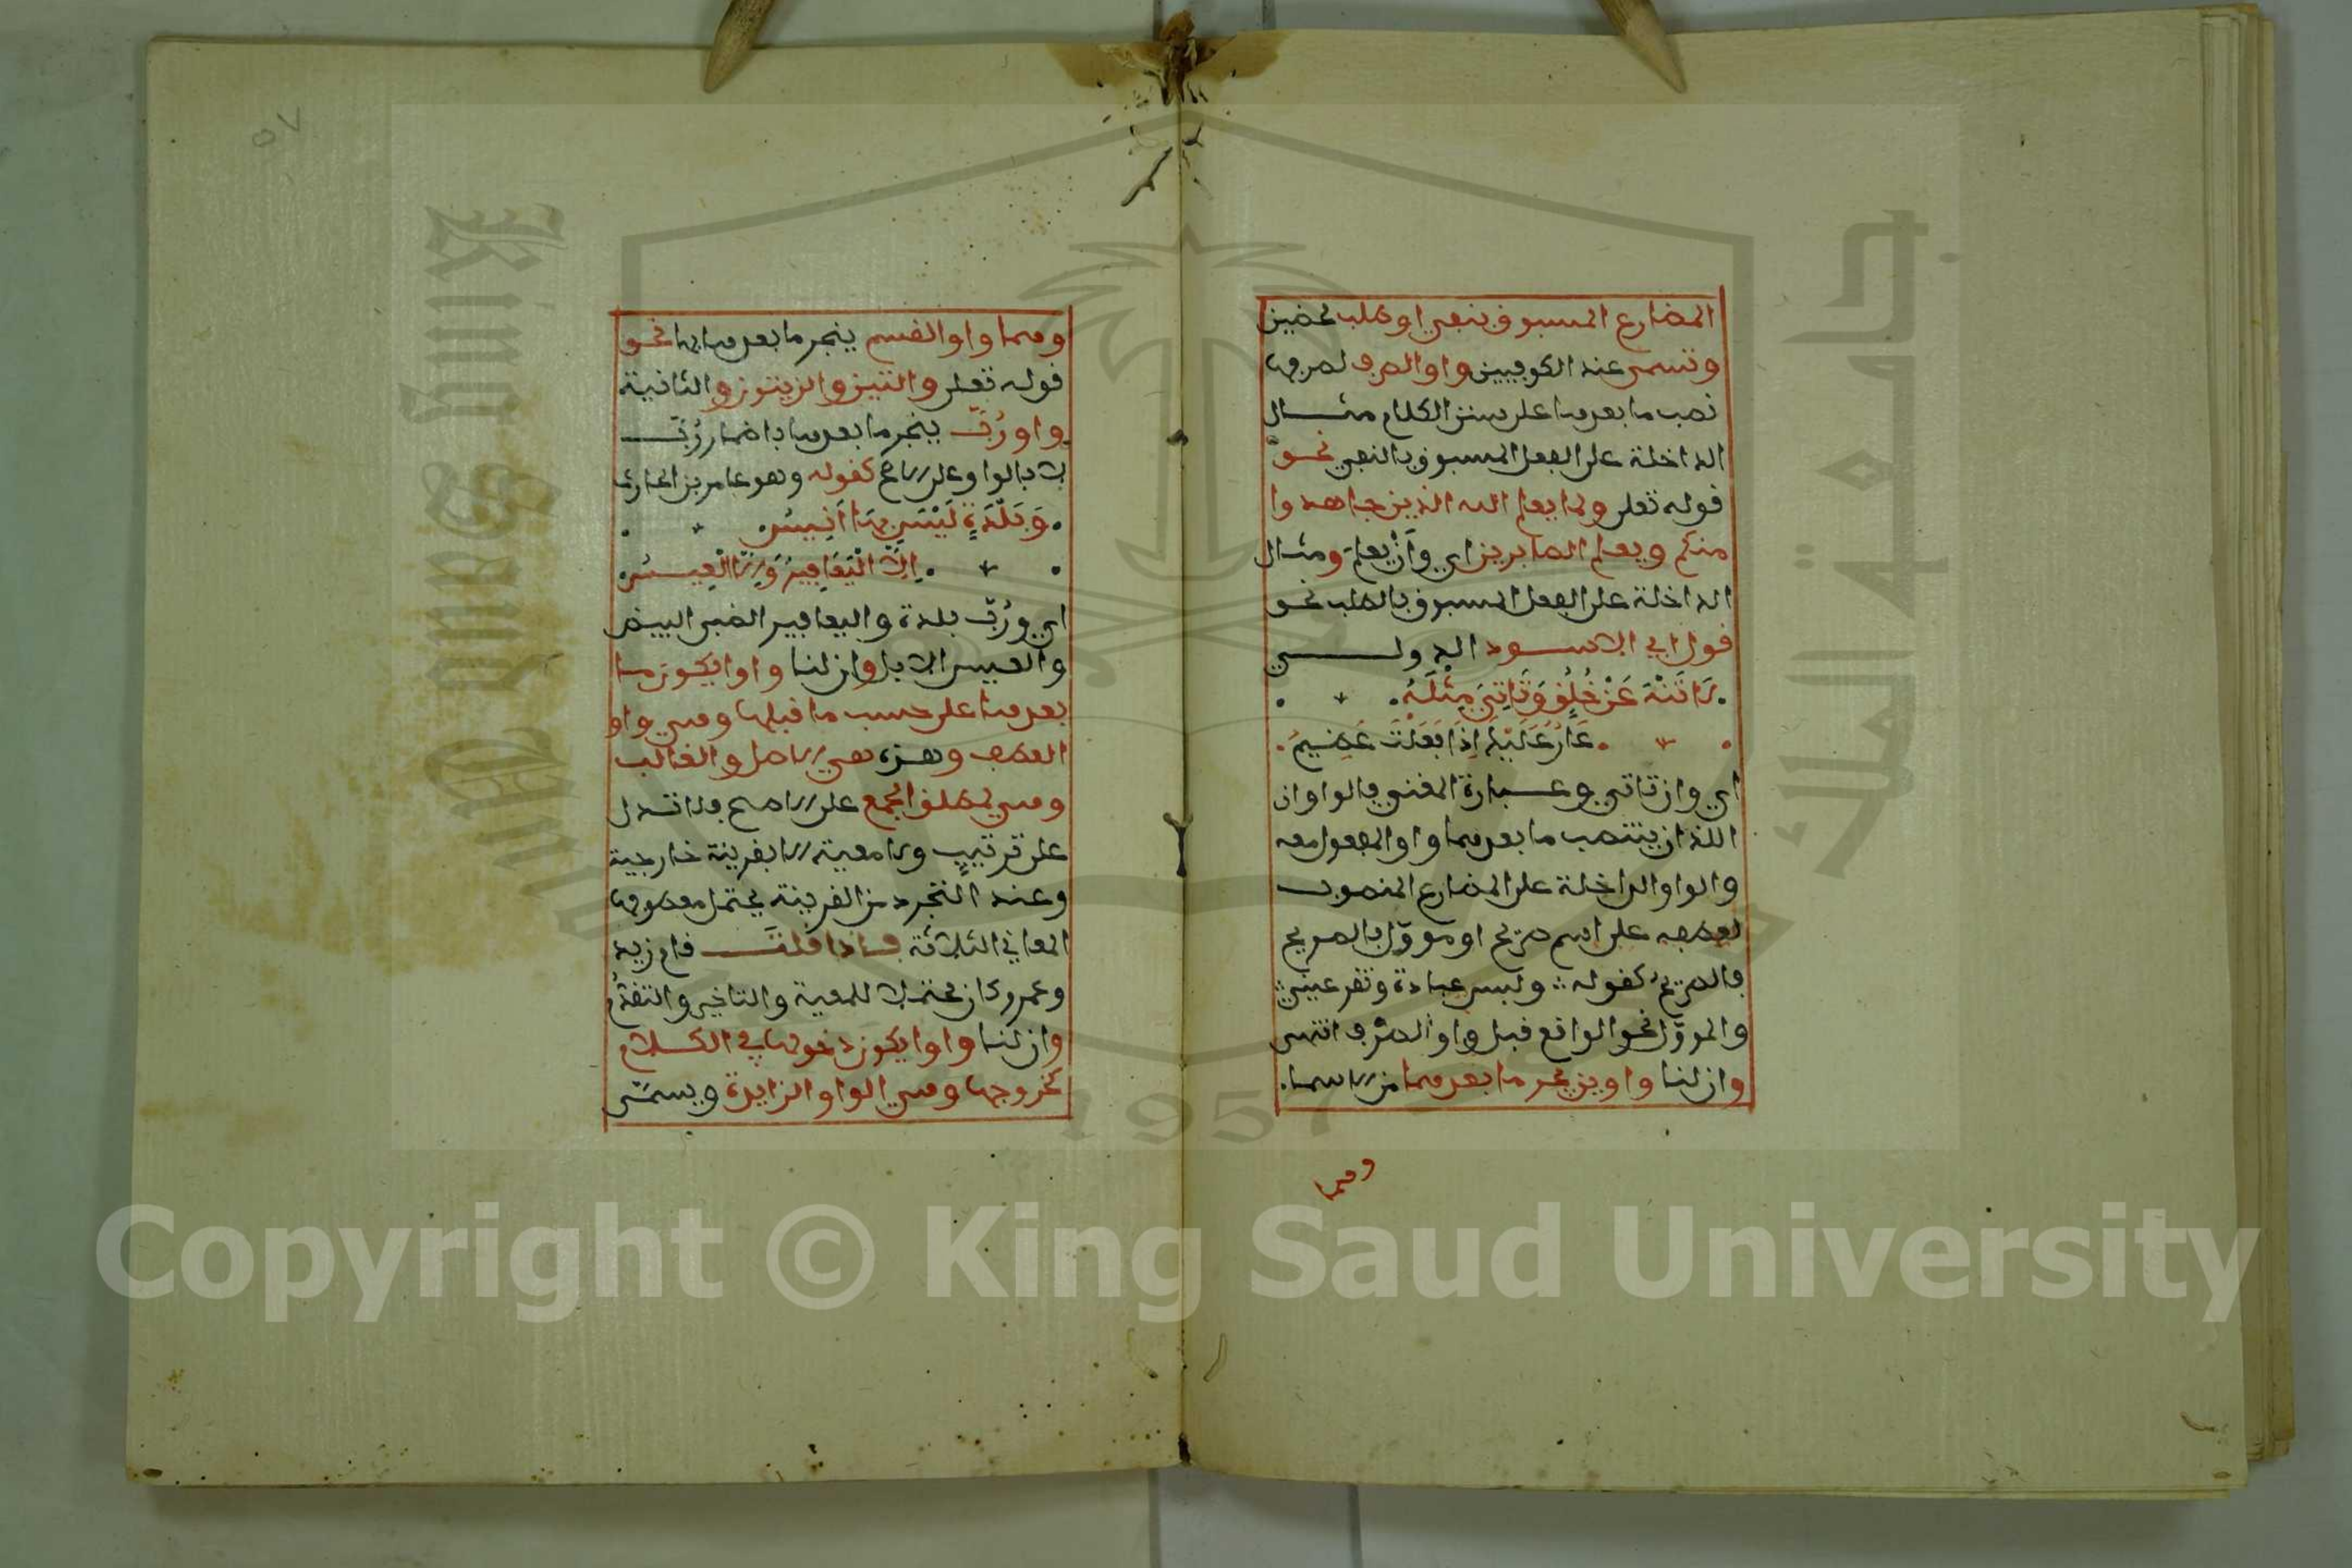 المضارع المسبوق بنفي او طلب محضين
وتسمى عند الكوفيين واو الصرف لصرفها
نصب ما بعدها على سنن الكلام مثال
الداخلة على الفعل المسبوق بالنفي نحو
قوله تعلى ولما يعلم الله الذين جاهدوا
منكم ويعلم الصابرين اي وَأَنْ يعلمَ ومثال
الداخلة على الفعل المسبوق بالطلب نحو
قول ابي الاسود الدولي
لَا تَنْهَ عَنْ خُلُقٍ وَتَاتِيَ مِثْلَهُ
عَارٌ عَلَيْكَ إِذَا فَعَلْتَ عَظِيمُ
اي وان تاتي وعبارة المغني والواوان
اللذان ينتصب ما بعدهما واو المفعول معه
والواو الداخلة على المضارع المنصوب
لعطفه على اسم صريح او مووّل بالصريح
فالصريح كقوله ولبس عباءة وتقر عيني
والموول نحو الواقع قبل واو الصرف انتهى
وان لنا واوين يجر ما بعدهما من الاسما
وهما
٥٧
وهما واو القسم ينجر ما بعدها بها نحو
قوله تعلى والتين والزيتون والثانية
واو رُبَّ ينجر ما بعدها باضمار رُبَّ
لا بالواو على الاصح كقوله وهو عامر بن الحارث
وَبَلْدَةٍ لَيْسَ بِهَا أَنِيسُ
إِلَّا الْيَعَافِيرُ وَإِلَّا الْعِيسُ
اي ورُبّ بلدة واليعافير الضبى البيض
والعيس الابل وان لنا واوا يكون ما
بعدها على حسب ما قبلها وهي واو
العطف وهذه هي الاصل والغالب
وهي لمطلق الجمع على الاصح فلا تدل
على ترتيبٍ ولا معية الا بقرينة خارجية
وعند التجرد من القرينة يحتمل معطوفها
المعاني الثلاثة فاذا قلتَ قام زيد
وعمرو كان محتملا للمعية والتاخير والتقدُّم
وان لنا واوا يكون دخولها في الكلام
كخروجها وهي الواو الزايدة ويسمّى
جامعة الملك
King Saud University
1957
Copyright © King Saud University